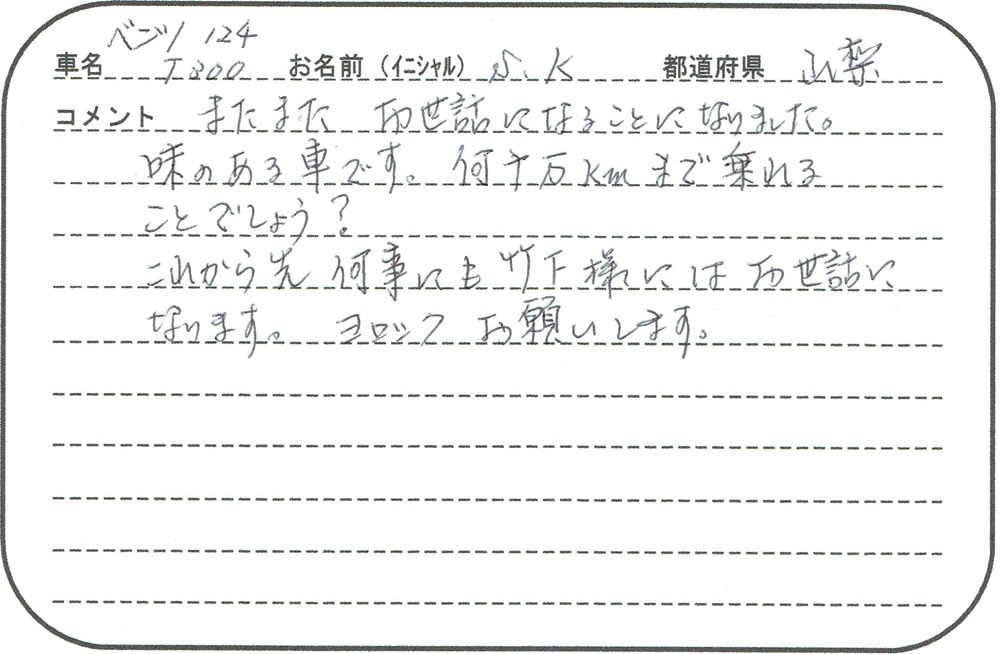 ベンツ 124
車名 T300 お名前(イニシャル) S.K 都道府県 山梨
コメント またまた お世話になることになりました。
味のある車です。何千万kmまで乗れる
ことでしょう?
これから先 何事にも 竹下様には お世話に
なります。 ヨロシク お願いします。